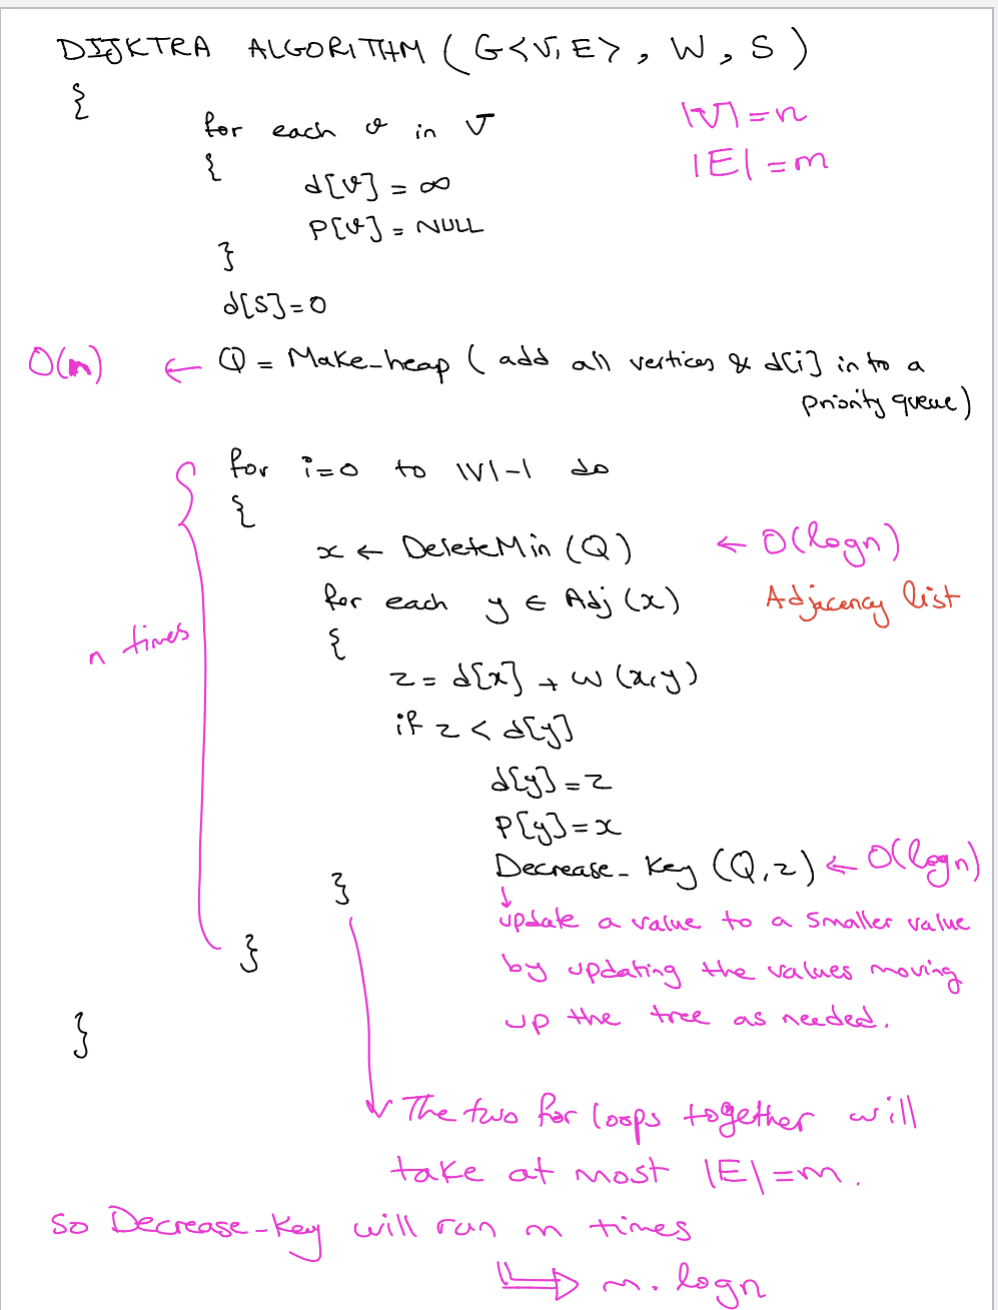 DIJKTRA ALGORITHM (G<V,E>, W, S)
{
for each v in V
|V|=n
{
|E|=m
d[v] = ∞
P[v] = NULL
}
d[S]=0
O(n) ← Q = Make-heap ( add all vertices & d[i] in to a
priority queue)
for i=0 to |V|-1 do
{
x ← DeleteMin (Q) ← O(logn)
for each y ∈ Adj (x) Adjacency list
n times
{
z = d[x] + w (x,y)
if z < d[y]
d[y] = z
P[y] = x
Decrease- Key (Q,z) ← O(logn)
}
↓
update a value to a smaller value
}
by updating the values moving
up the tree as needed.
}
The two for loops together will
take at most |E|=m.
So Decrease-Key will run m times
⇒ m. logn